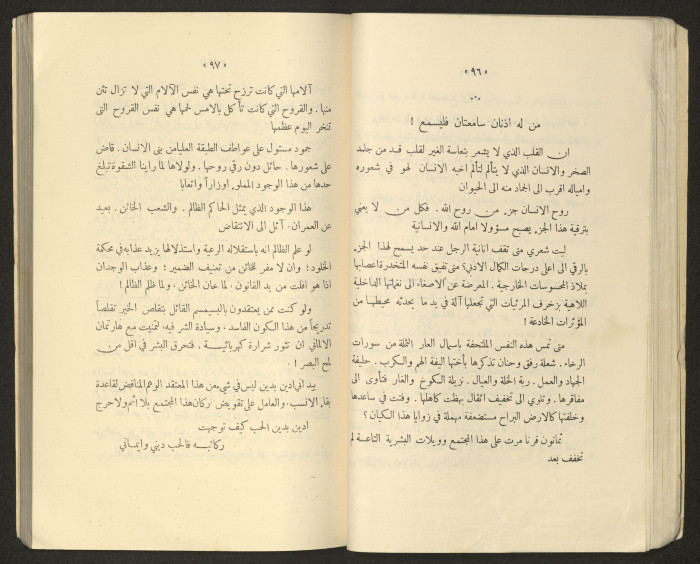 «٩٦»
من له اذنان سامعتان فليسمع !
ان القلب الذي لا يشعر بتعاسة الغير لقلب قد من جلمد
الصخر والانسان الذي لا يتألم لتألم اخيه الانسان لهو في شعوره
وامياله اقرب الى الجماد منه الى الحيوان
روح الانسان جزء من روح الله . فكل من لا يعني
بترقية هذا الجزء يصبح مسؤولا امام الله والانسانية
ليت شعري متى تقف انانية الرجل عند حد يسمح لهذا الجزء
بالرقي الى اعلى درجات الكمال الادبي؟ متى تفيق نفسه المتخدرة اعصابها
بملاذ المحسوسات الخارجية . المعرضة عن الاصغاء الى نغماتها الداخلية
اللاهية بزخرف المرئيات التي تجعلها آلة في يد ما يحدثه محيطها من
المؤثرات الخادعة !
متى تمس هذه النفس الملتحفة باسمال العار الثملة من سورات
الرخاء . شعلة رفق وحنان تذكرها بأختها اليفة الهم والكرب . حليفة
الجهاد والعمل . ربة الخلة والعيال . نزيلة الكوخ والغار فتأوى الى
مفاقرها . وتلوي الى تخفيف اثقال بهظت كاهلها . وفتت في ساعدها
وخلفتها كالارض البراح مستضعفة مهملة في زوايا هذا الكيان ؟
ثمانون قرنا مرت على هذا المجتمع وويلات البشرية التاعسة لم
تخفف بعد
«٩٧»
آلامها التي كانت ترزح تحتها هي نفس الآلام التي لا تزال تئن
منها . والقروح التي كانت تأكل بالامس لحمها هي نفس القروح التى
تنخر اليوم عظمها
جمود مستول على عواطف الطبقة العليا من بنى الانسان . قاض
على شعورها . حائل دون رقي روحها . ولولاها لما راينا الشقوة تبلغ
حدها من هذا الوجود المملوء اوزاراً واتعابا
هذا الوجود الذي يمثل الحاكم الظالم . والشعب الخائن . بعيد
عن العمران . آئل الى الانتقاض
لو علم الظالم انه باستقلاله الرعية واستذلالها يزيد عذابه في محكمة
الخلود؛ وان لا مفر للخائن من تعنيف الضمير؛ وعذاب الوجدان
اذا هو افلت من يد القانون ، لما خان الخائن ، ولما ظلم الظالم !
ولو كنت ممن يعتقدون بالبسيمسم القائل بتقلص الخير تقلصاً
تدريجاً من هذا الكون الفاسد ، وسيادة الشر فيه، لتمنيت مع هارتمان
الالماني ان تثور شرارة كهربائية . فتحرق البشر في اقل من
لمح البصر !
بيد اني ادين بدين ليس في شيء من هذا المعتقد الوهم المناقض لقاعدة
بقاء الانسب، والعامل على تقويض ركان هذا المجتمع بلا اثم ولا حرج
ادين بدين الحب كيف توجهت
ركائبه فالحب ديني وايماني